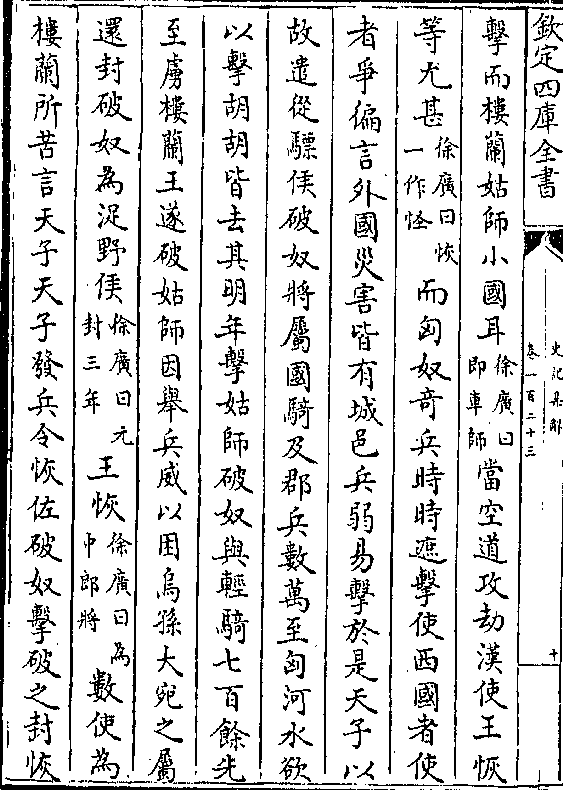 欽定四庫全書
史記集解
卷一百二十三
十
擊而樓蘭姑師小國耳徐廣曰即車師當空道攻劫漢使王恢
等尤甚徐廣曰恢一作怪而匈奴奇兵時時遮擊使西國者使
者爭徧言外國災害皆有城邑兵弱易擊於是天子以
故遣從驃侯破奴將屬國騎及郡兵數萬至匈河水欲
以擊胡胡皆去其明年擊姑師破奴與輕騎七百餘先
至虜樓蘭王遂破姑師因舉兵威以困烏孫大宛之屬
還封破奴為浞野侯徐廣曰元封三年王恢徐廣曰為中郎將數使為
樓蘭所苦言天子天子發兵令恢佐破奴擊破之封恢